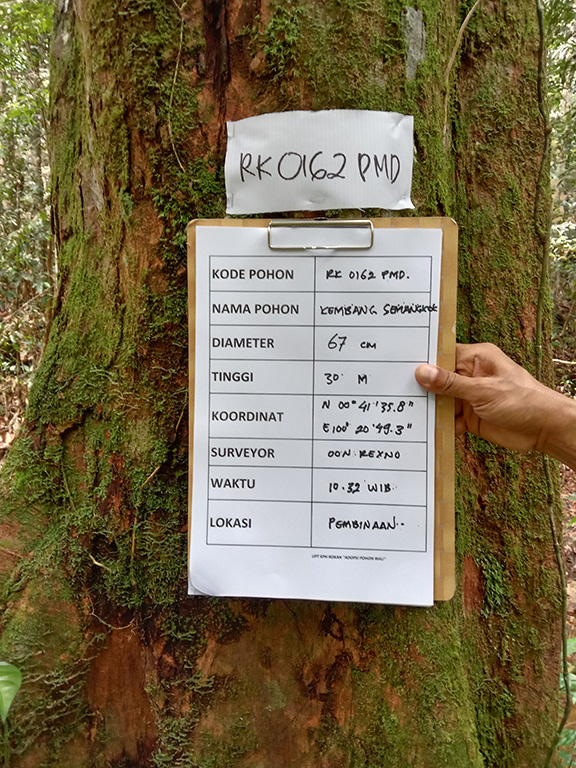 RK 0162 PMD
KODE POHON RK 0162 PMD.
NAMA POHON KEMBANG SEMANGKOK
DIAMETER 67 CM
TINGGI 30 M
KOORDINAT N 00° 41' 35.8"
E 100° 20' 49.3"
SURVEYOR OON REXNO
WAKTU 10.32 WIB.
LOKASI PEMBINAAN..
UPT KPH ROKAN "ADOPSI POHON RIAU"